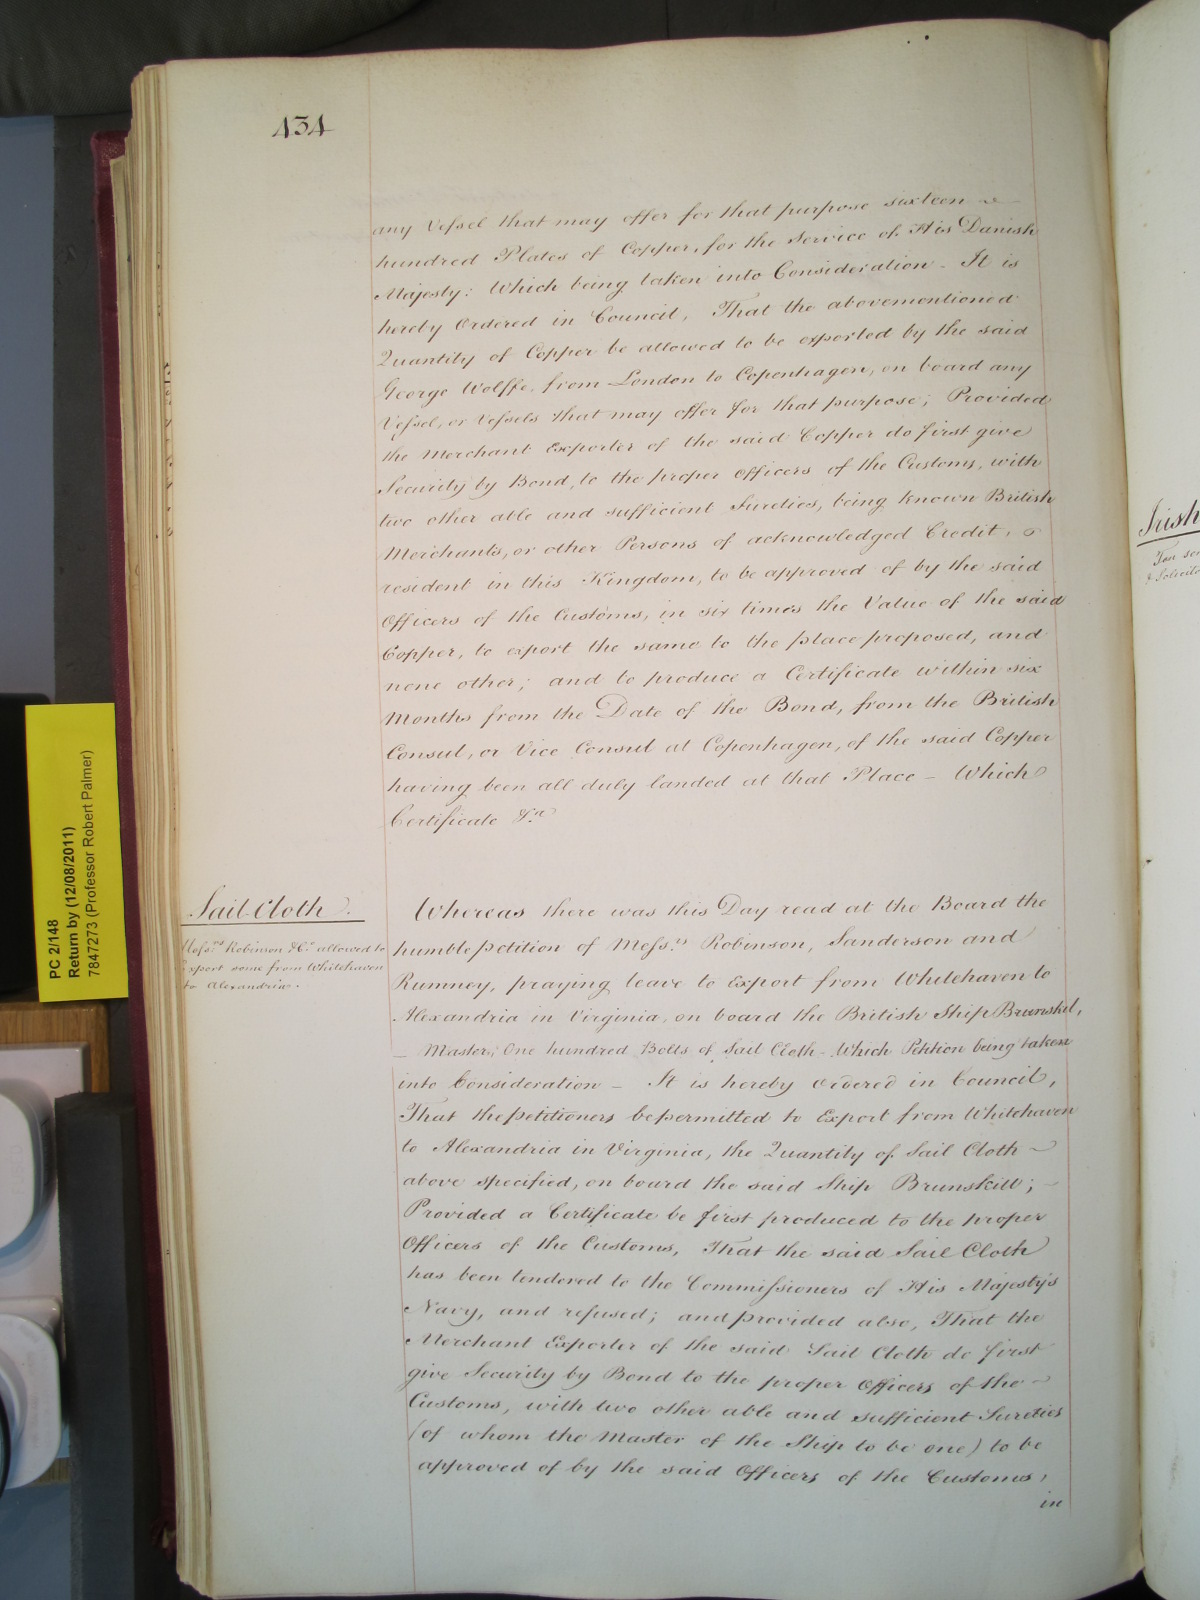 434
any Vessel that may offer for that purpose sixteen
hundred Plates of Copper, for the Service of His Danish
Majesty: Which being taken into Consideration - It is
hereby Ordered in Council, That the abovementioned
Quantity of Copper be allowed to be exported by the said
George Wolffe, from London to Copenhagen, on board any
Vessel, or Vessels that may offer for that purpose; Provided
the Merchant Exporter of the said Copper do first give
Security by Bond, to the proper Officers of the Customs, with
two other able and sufficient Sureties, being known British
Merchants, or other Persons of acknowledged Credit,
resident in this Kingdom, to be approved of by the said
Officers of the Customs, in six times the Value of the said
Copper, to export the same to the place proposed, and
none other; and to produce a Certificate within six
Months from the Date of the Bond, from the British
Consul, or Vice Consul at Copenhagen, of the said Copper
having been all duly landed at that Place - Which
Certificate &.a
Sail Cloth.
Mess.rs Robinson &C.o allowed to
export some from Whitehaven
to Alexandria.
Whereas there was this Day read at the Board the
humble petition of Mess.rs Robinson, Sanderson and
Rumney, praying leave to Export from Whitehaven to
Alexandria in Virginia, on board the British Ship Brunskil,
— Master, One hundred Bolts of Sail Cloth - Which Petition being taken
into Consideration - It is hereby ordered in Council,
That the petitioners be permitted to Export from Whitehaven
to Alexandria in Virginia, the Quantity of Sail Cloth
above specified, on board the said Ship Brunskill;
Provided a Certificate be first produced to the proper
Officers of the Customs, That the said Sail Cloth
has been tendered to the Commissioners of His Majesty's
Navy, and refused; and provided also, That the
Merchant Exporter of the said Sail Cloth do first
give Security by Bond to the proper Officers of the
Customs, with two other able and sufficient Sureties
(of whom the Master of the Ship to be one) to be
approved of by the said Officers of the Customs,
in
PC 2/148
Return by (12/08/2011)
7847273 (Professor Robert Palmer)